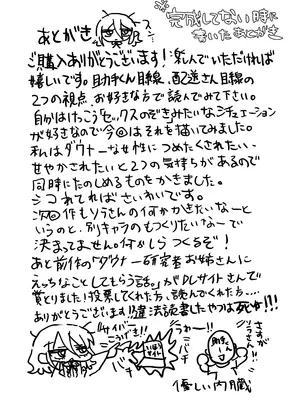 完成してない時に
書いたあとがき
あとがき
ご購入ありがとうございます!楽しんでいただければ
嬉しいです。助手くん目線、配達さん目線の
2つの視点、お好きな方で読んでみて下さい。
自分はけっこうセックスのぞきみたいなシチュエーション
が好きなので今回はそれを描いてみました。
私はダウナーな女性につめたくされたい、
甘やかされたいと2つの気持ちがあるので
同時にたのしめるものをかきました。
シコれてればさいわいです。
次回作もリラさんの何かかきたいなーと
いうのと、別キャラのもつくりたいなーで
決まってません。何かしらつくるぞ!
あと前作の「ダウナー研究者お姉さんに
えっちなことしてもらう話。」がDLサイトさんで
賞とりました!投票してくれた方、読んでくれた方....
ありがとうございます!!違法読書したやつは死ヌ!!!
サイバー
こうげき!!
バチ
バチ
うわー!!
さすが
リラさん!!
優しい内臓